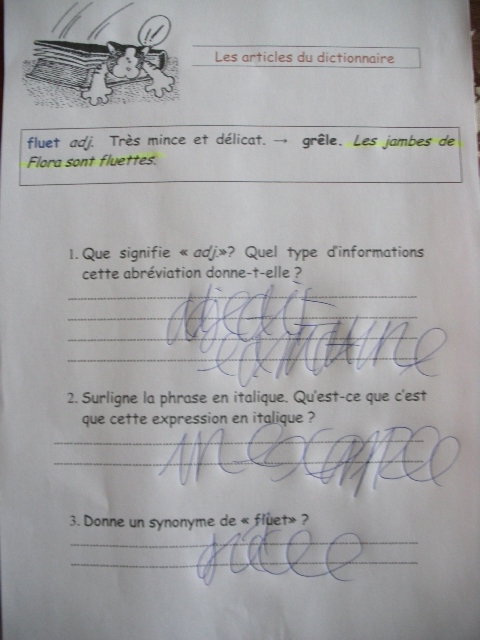 Les articles du dictionnaire
fluet adj. Très mince et délicat. → grêle. Les jambes de
Flora sont fluettes.
1. Que signifie « adj.»? Quel type d'informations
cette abréviation donne-t-elle ?
adjectif
2. Surligne la phrase en italique. Qu'est-ce que c'est
que cette expression en italique ?
un
3. Donne un synonyme de « fluet» ?